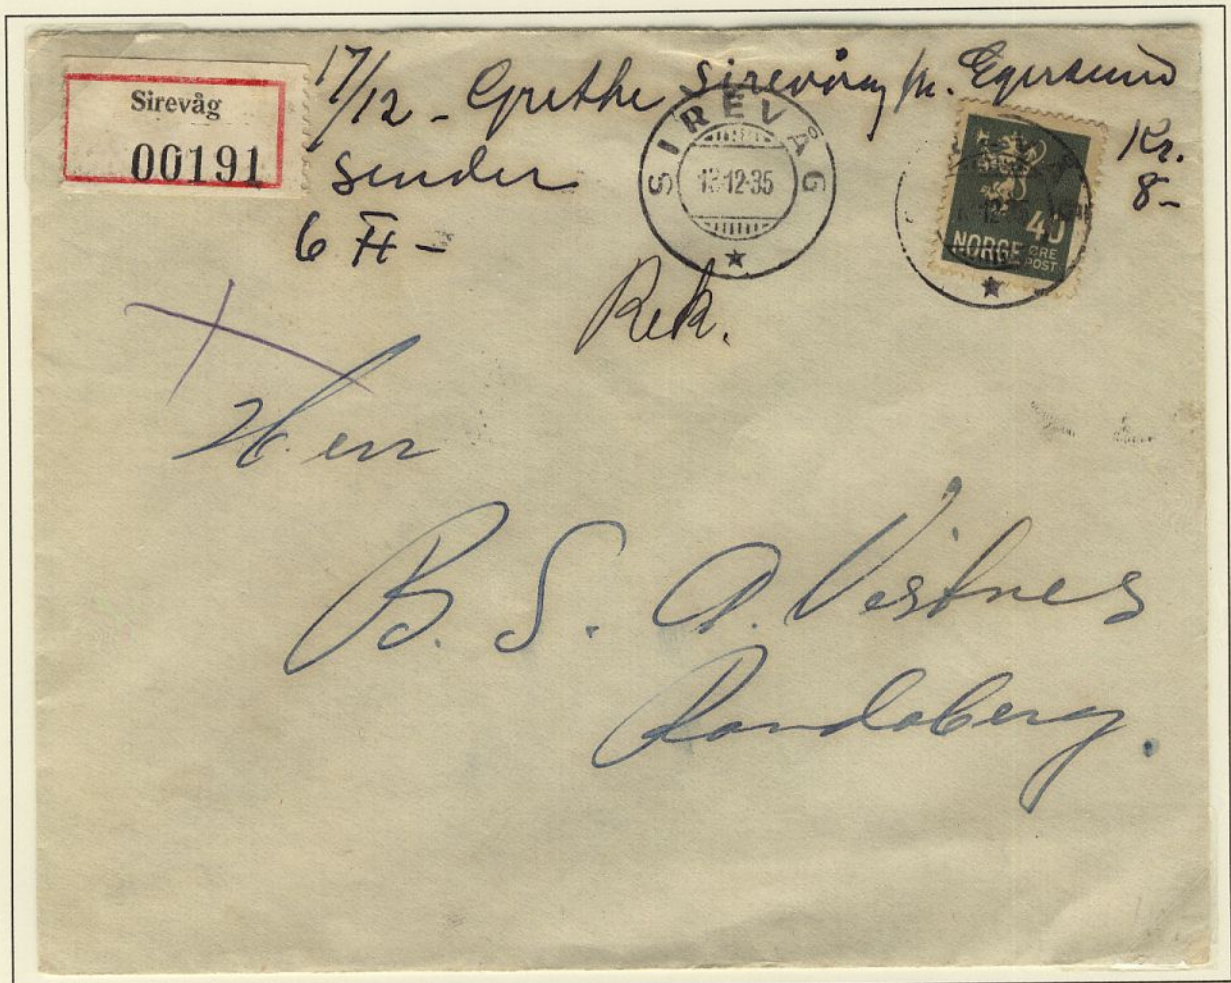 Sirevåg
00191
17/12 - Grethe Sirevåg p.r. Egersund
sender
Kr.
8-
6 H -
SIREVÅG
13-12-35
40
NORGE ØRE
POST
Rek.
Herr
B. S. A. Vistnes
Randaberg.